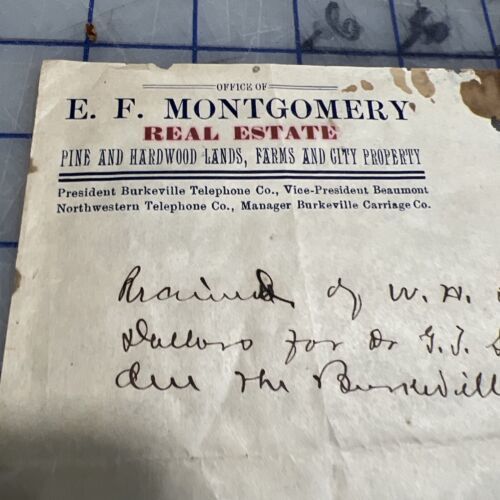 OFFICE OF
E. F. MONTGOMERY
REAL ESTATE
PINE AND HARDWOOD LANDS, FARMS AND CITY PROPERTY
President Burkeville Telephone Co., Vice-President Beaumont
Northwestern Telephone Co., Manager Burkeville Carriage Co.
Received of W. H.
Dollars for Dr G. J.
due the Burkevill